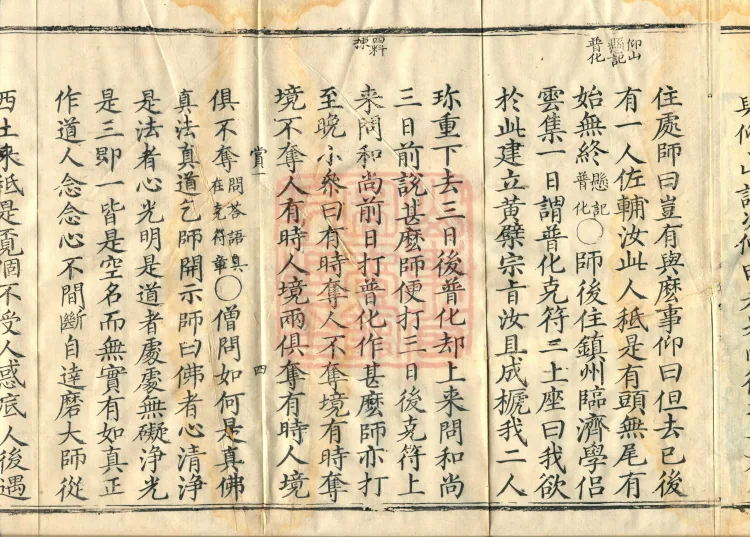 仰山
懸記
普化
四料
揀
住處師曰豈有與麽事仰曰但去已後
有一人佐輔汝此人秪是有頭無尾有
始無終懸記普化〇師後住鎮州臨濟學侣
雲集一日謂普化克符二上座曰我欲
於此建立黃檗宗旨汝且成禠我二人
珎重下去三日後普化却上来問和尚
三日前說甚麽師便打三日後克符上
来問和尚前日打普化作甚麽師亦打
至晚小叅曰有時奪人不奪境有時奪
境不奪人有時人境兩俱奪有時人境
賞一 四
俱不奪問荅語具在克符章〇僧問如何是真佛
真法真道乞師開示師曰佛者心清淨
是法者心光明是道者處處無礙淨光
是三即一皆是空名而無實有如真正
作道人念念心不間斷自達磨大師從
西土来秪是覓個不受人惑底人後遇